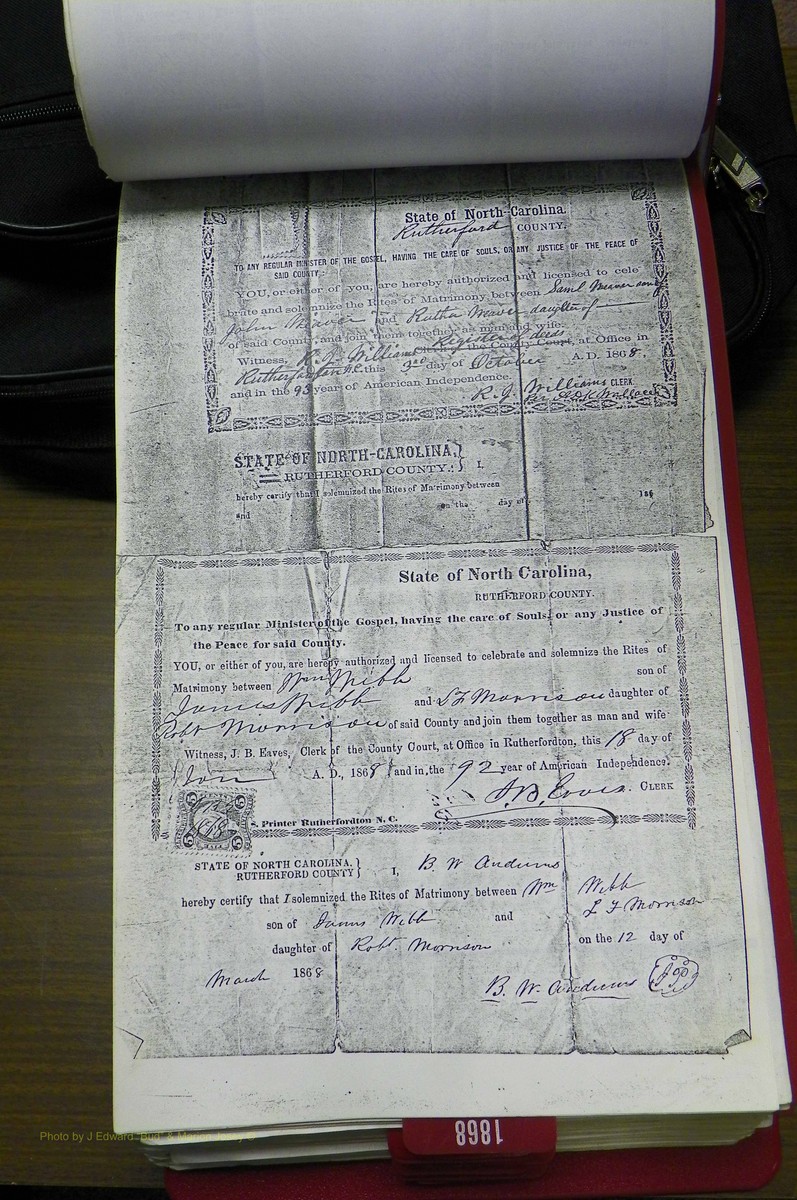 State of North-Carolina.
Rutherford COUNTY.
TO ANY REGULAR MINISTER OF THE GOSPEL, HAVING THE CARE OF SOULS, OR ANY JUSTICE OF THE PEACE OF
SAID COUNTY:
YOU, or either of you, are hereby authorized and licensed to cele
brate and solemnize the Rites of Matrimony between Saml
John and Rutha daughter of
of said County, and join them together as man and wife.
Register Deeds
Witness, R. J. Williams Clerk of the County Court, at Office in
Rutherfordton N.C. this 3rd day of October A. D. 1868,
and in the 93 year of American Independence.
R. J. Williams CLERK
STATE OF NORTH-CAROLINA,
RUTHERFORD COUNTY.: } I,
hereby certify that I solemnized the Rites of Matrimony between
and on the day of 186
State of North Carolina,
RUTHERFORD COUNTY.
To any regular Minister of the Gospel, having the care of Souls, or any Justice of
the Peace for said County.
YOU, or either of you, are hereby authorized and licensed to celebrate and solemnize the Rites of
Matrimony between Wm Webb son of
James Webb and L F Morrison daughter of
Robt Morrison of said County and join them together as man and wife
Witness, J. B. Eaves, Clerk of the County Court, at Office in Rutherfordton, this 18 day of
Jan A. D., 1868 and in the 92 year of American Independence.
J. B. Eaves. CLERK
s, Printer Rutherfordton N. C.
STATE OF NORTH CAROLINA. }
RUTHERFORD COUNTY } I, B. W Andrews
hereby certify that I solemnized the Rites of Matrimony between Wm Webb
son of James Webb and L F Morrison
daughter of Robt. Morrison on the 12 day of
March 1868
B. W. Andrews JP
1868
Photo by J Edward "Bud" &